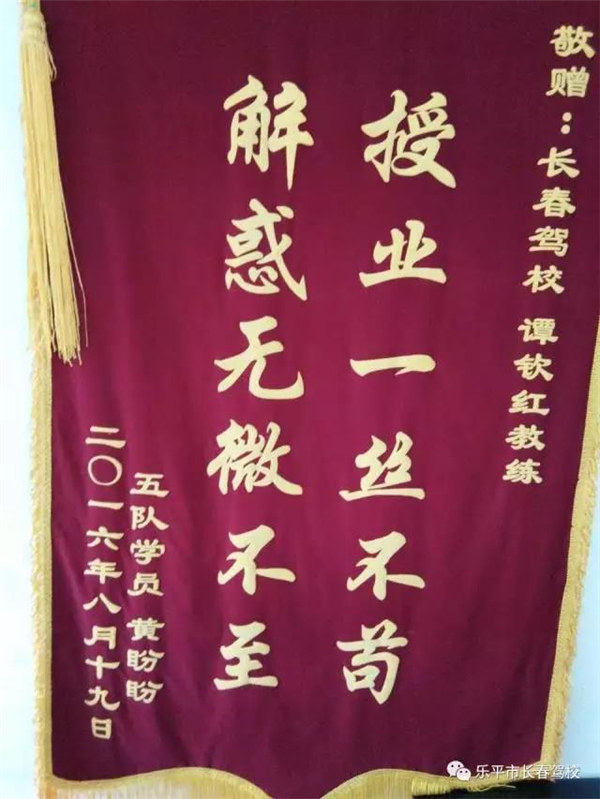 敬赠：长春驾校 谭钦红教练
授业一丝不苟
解惑无微不至
五队学员 黄盼盼
二〇一六年八月十九日
乐平市长春驾校